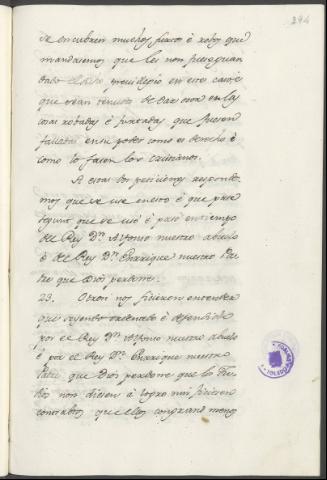 294
se encubren muchos furtos è robos que
mandasemos que les non fuese guar
dado el dicho previllegio en este caso è
que sean tenudos de dar otor en las
cosas robadas è furtadas que fueren
falladas en su poder como es derecho è
como lo facen los cristianos.
A estas dos peticiones responde
mos que se use en esto è que pase
segunt que se usó è pasó en tiempo
del Rey Dn. Alfonso nuestro abuelo
è del Rey Dn. Enrrique nuestro Pa
dre que Dios perdone.
23. Otrosi nos ficieron entender
que seyendo ordenado è defendido
por el Rey Dn. Alfonso nuestro abuelo
è por el Rey Dn. Enrrique nuestro
Padre que Dios perdone que los Ju
dios non diesen à logro nin ficiesen
contrabtos que ellos comprando menos
TOLEDO